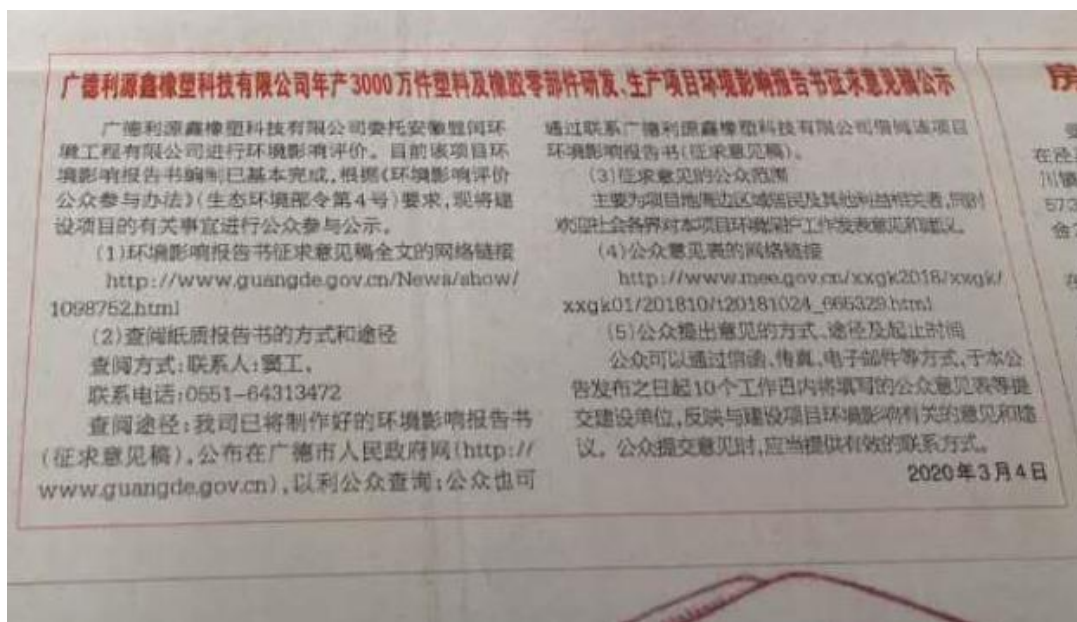 广德利源鑫橡塑科技有限公司年产3000万件塑料及橡胶零部件研发、生产项目环境影响报告书征求意见稿公示
广德利源鑫橡塑科技有限公司委托安徽显闰环
境工程有限公司进行环境影响评价。目前该项目环
境影响报告书编制已基本完成,根据《环境影响评价
公众参与办法》(生态环境部令第4号)要求,现将建
设项目的有关事宜进行公众参与公示。
(1)环境影响报告书征求意见稿全文的网络链接
http://www.guangde.gov.cn/News/show/
1098752.html
(2)查阅纸质报告书的方式和途径
查阅方式:联系人:窦工,
联系电话:0551-64313472
查阅途径:我司已将制作好的环境影响报告书
(征求意见稿),公布在广德市人民政府网(http://
www.guangde.gov.cn),以利公众查询;公众也可
通过联系广德利源鑫橡塑科技有限公司借阅该项目
环境影响报告书(征求意见稿)。
(3)征求意见的公众范围
主要为项目地周边区域居民及其他利益相关者,同时
欢迎社会各界对本项目环境保护工作发表意见和建议。
(4)公众意见表的网络链接
http://www.mee.gov.cn/xxgk2018/xxgk/
xxgk01/201810/t20181024_665329.html
(5)公众提出意见的方式、途径及起止时间
公众可以通过信函、传真、电子邮件等方式,于本公
告发布之日起10个工作日内将填写的公众意见表等提
交建设单位,反映与建设项目环境影响有关的意见和建
议。公众提交意见时,应当提供有效的联系方式。
2020年3月4日
房
在泾
川镇
573